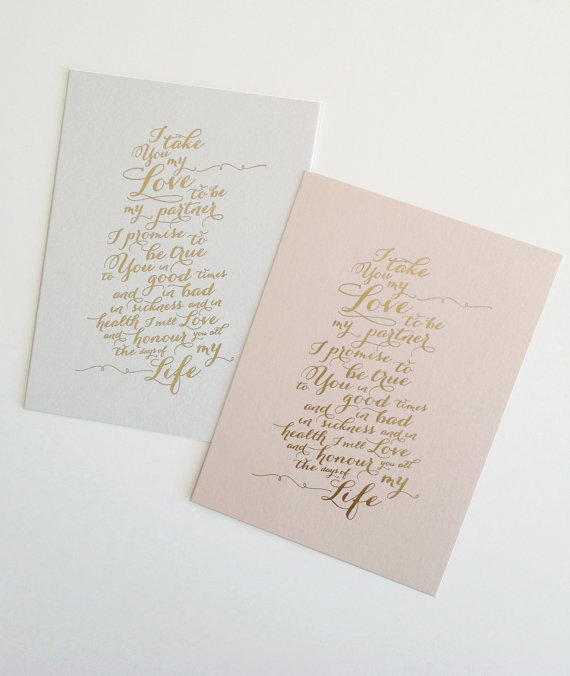 I take
You my
Love to be
my partner
I promise to
be true
to You in
good times
and in bad
in sickness and in
health I will Love
and honour you all
the days of my
Life
I take
You my
Love to be
my partner
I promise to
be true
to You in
good times
and in bad
in sickness and in
health I will Love
and honour you all
the days of my
Life